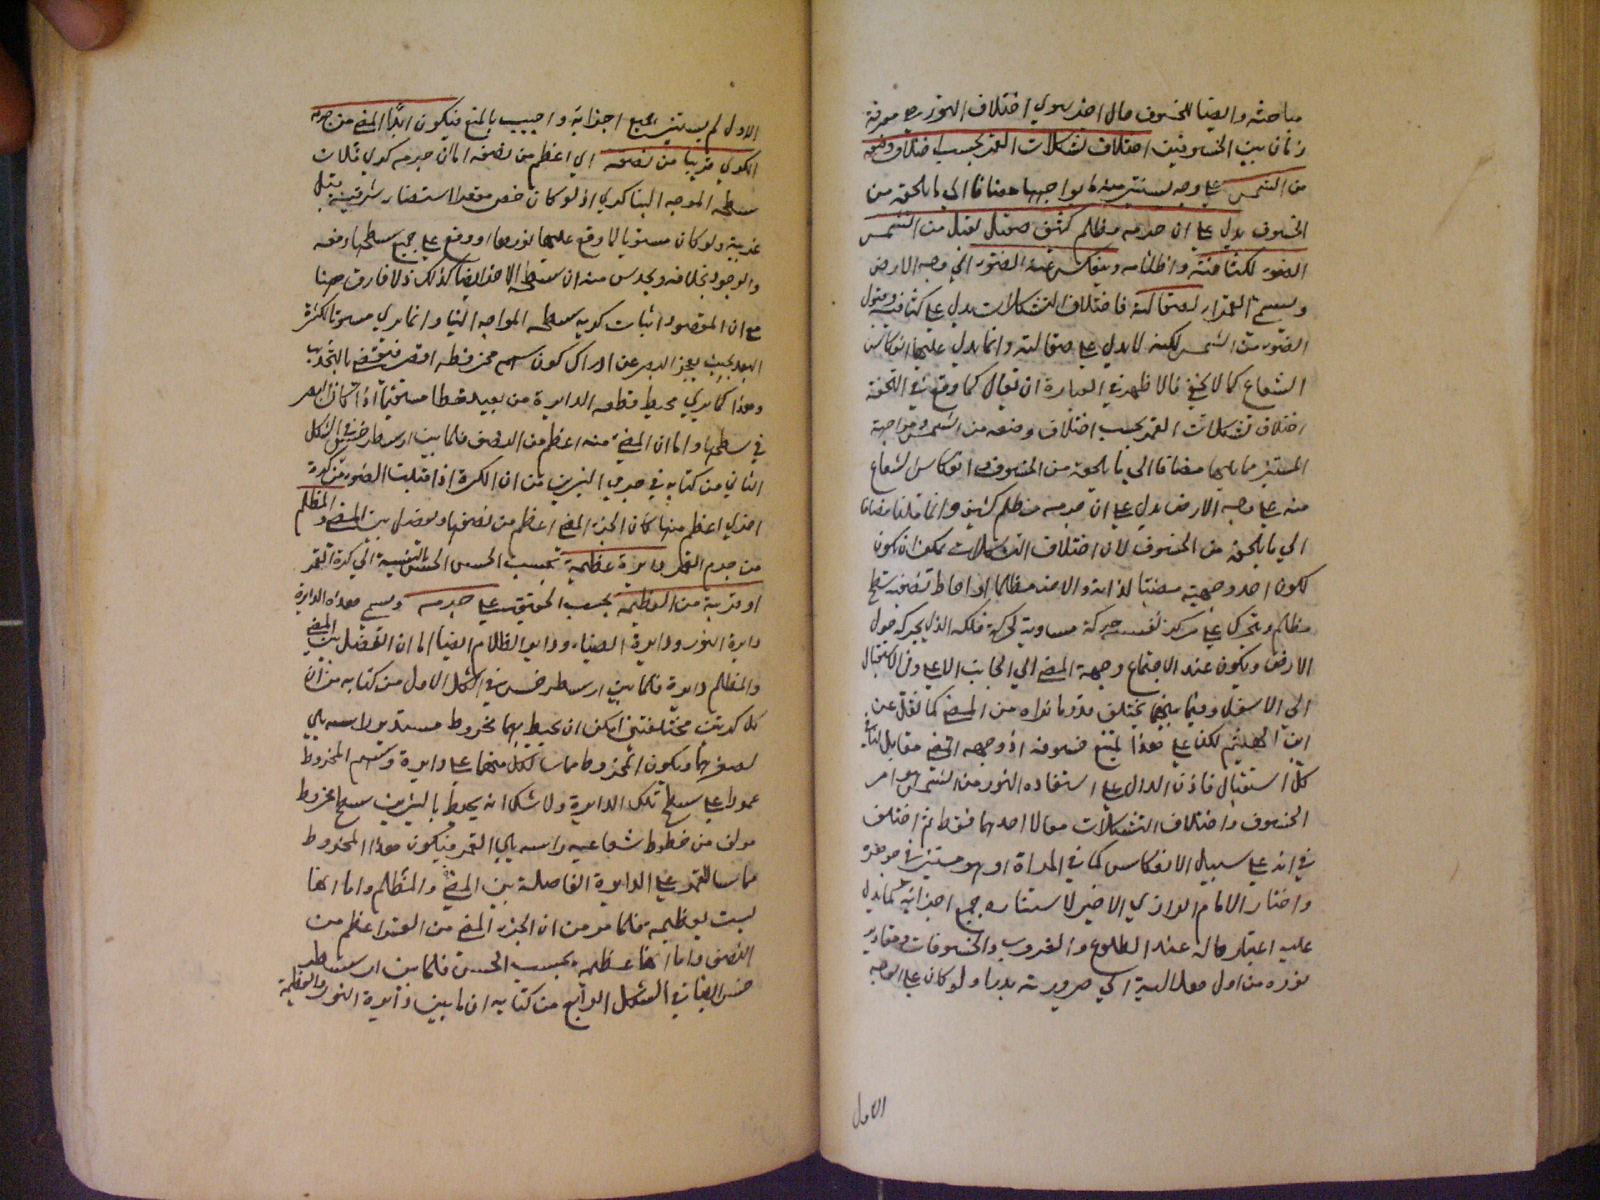 مباحثه وايضا للخسوف حال اخر سوى اختلاف
زمان بين الخسوفين اختلاف تشكلات القمر بحسب اختلاف وضعه
من الشمس على وجه يستنير منه ما يواجهها مضافا الى ما يلحقه من
الخسوف يدل على ان جرمه مظلم كثيف صقيل يقبل من الشمس
الضوء لكثافته وينعكس عنه الضوء الى وجه الارض
لصقالته فاختلاف التشكلات يدل على كثافته وقبول
الضوء من الشمس لكنه لا يدل على صقالته وانما يدل عليها انعكاس
الشعاع كما لا يخفى فالاظهر في العبارة ان يقال كما وقع في التحفة
اختلاف تشكلات القمر بحسب اختلاف وضعه من الشمس
المستنير مما يليها مضافا الى ما يلحقه من الخسوف وانعكاس الشعاع
منه على وجه الارض يدل على ان جرمه مظلم كثيف وانما قلنا مضافا
الى ما يلحقه من الخسوف لان اختلاف التشكلات يمكن ان يكون
لكون احد وجهيه مضيئا لذاته والاخر مظلما
مظلم ويتحرك على مركز نفسه حركة مساوية لحركة فلكه الذي يحركه حول
الارض ويكون عند الاجتماع وجهه المضي الى الجانب الاعلى وفي الاستقبال
الى الاسفل وفيما بينهما يختلف قدر ما نراه من المضي كما نقل عن
ابن الهيثم لكن على هذا يمتنع خسوفه اذ وجهه المضي مقابل لنا في
كل استقبال فاذن الدال على استفادة النور من الشمس هو امر
الخسوف واختلاف التشكلات معا لا احدهما فقط ثم اختلف
في انه على سبيل الانعكاس كما في المرآة او هو مستنير في جوهره
واختار الامام الرازي الاخير لاستناره جميع اجزائه كما يدل
عليه اعتبار حاله عند الطلوع والغروب والخسوفات
نوره من اول هلاليته الى صيرورته بدرا ولو كان على الوجه
الاول
الاول لم يستنر جميع اجزائه واجيب بالمنع فيكون ابدا المضي من جرمه
الكري قريبا من نصفه اي اعظم من نصفه اما ان جرمه كري فلان
سطحه المواجه الينا كري اذ لو كان
غربيه ولو كان مستويا لما وقع عليها نورها او وقع على جميع سطحها دفعه
والوجود بخلافه ويحدس منه ان سطحه الاخر ايضا كذلك اذ لا فارق ههنا
مع ان المقصود اثبات كرية سطحه المواجه الينا وانما يرى مستويا لكثرة
البعد بحيث يعجز البصر عن ادراك كون سهم مخروطه اقصر
وهذا كما يرى محيط قطعه الدايرة من بعيد خطا مستقيما اذا كان البصر
في سطحها واما ان المضي منه اعظم من النصف فلما بين ارسطرخس في الشكل
الثاني من كتابه في جرمي النيرين من ان الكرة اذا قبلت الضوء من كرة
اخرى اعظم منها كان الجزء المضي اعظم من نصفها ويفصل بين المضي والمظلم
من جرم القمر دايرة عظيمة بحسب الحس بالنسبة الى كرة القمر
او قريبة من العظيمه بحسب الحقيقة على جرمه وتسمى هذه الدايرة
دايرة النور ودايرة الضياء ودايرة الظلام ايضا اما ان الفصل بين المضي
والمظلم دايرة فلما بين ارسطرخس في الشكل الاول من كتابه من ان
كل كرتين مختلفتين امكن ان يحيط بهما مخروط مستدير راسه يلي
اصغرهما ويكون المخروط مماسا لكل منهما على دايرة وسهم المخروط
عمودا على سطح تلك الدايرة ولا شك انه يحيط بالنيرين سطح مخروط
مولف من خطوط شعاعيه راسه يلي القمر فيكون هذا المخروط
مماسا للقمر على الدايرة الفاصلة بين المضي والمظلم واما انها
ليست بعظيمه فلما مر من ان الجزء المضي من القمر اعظم من
النصف واما انها عظيمه بحسب الحس فلما بين ارسطر
خس ايضا في الشكل الرابع من كتابه ان ما بين دايرة النور والعظيمة